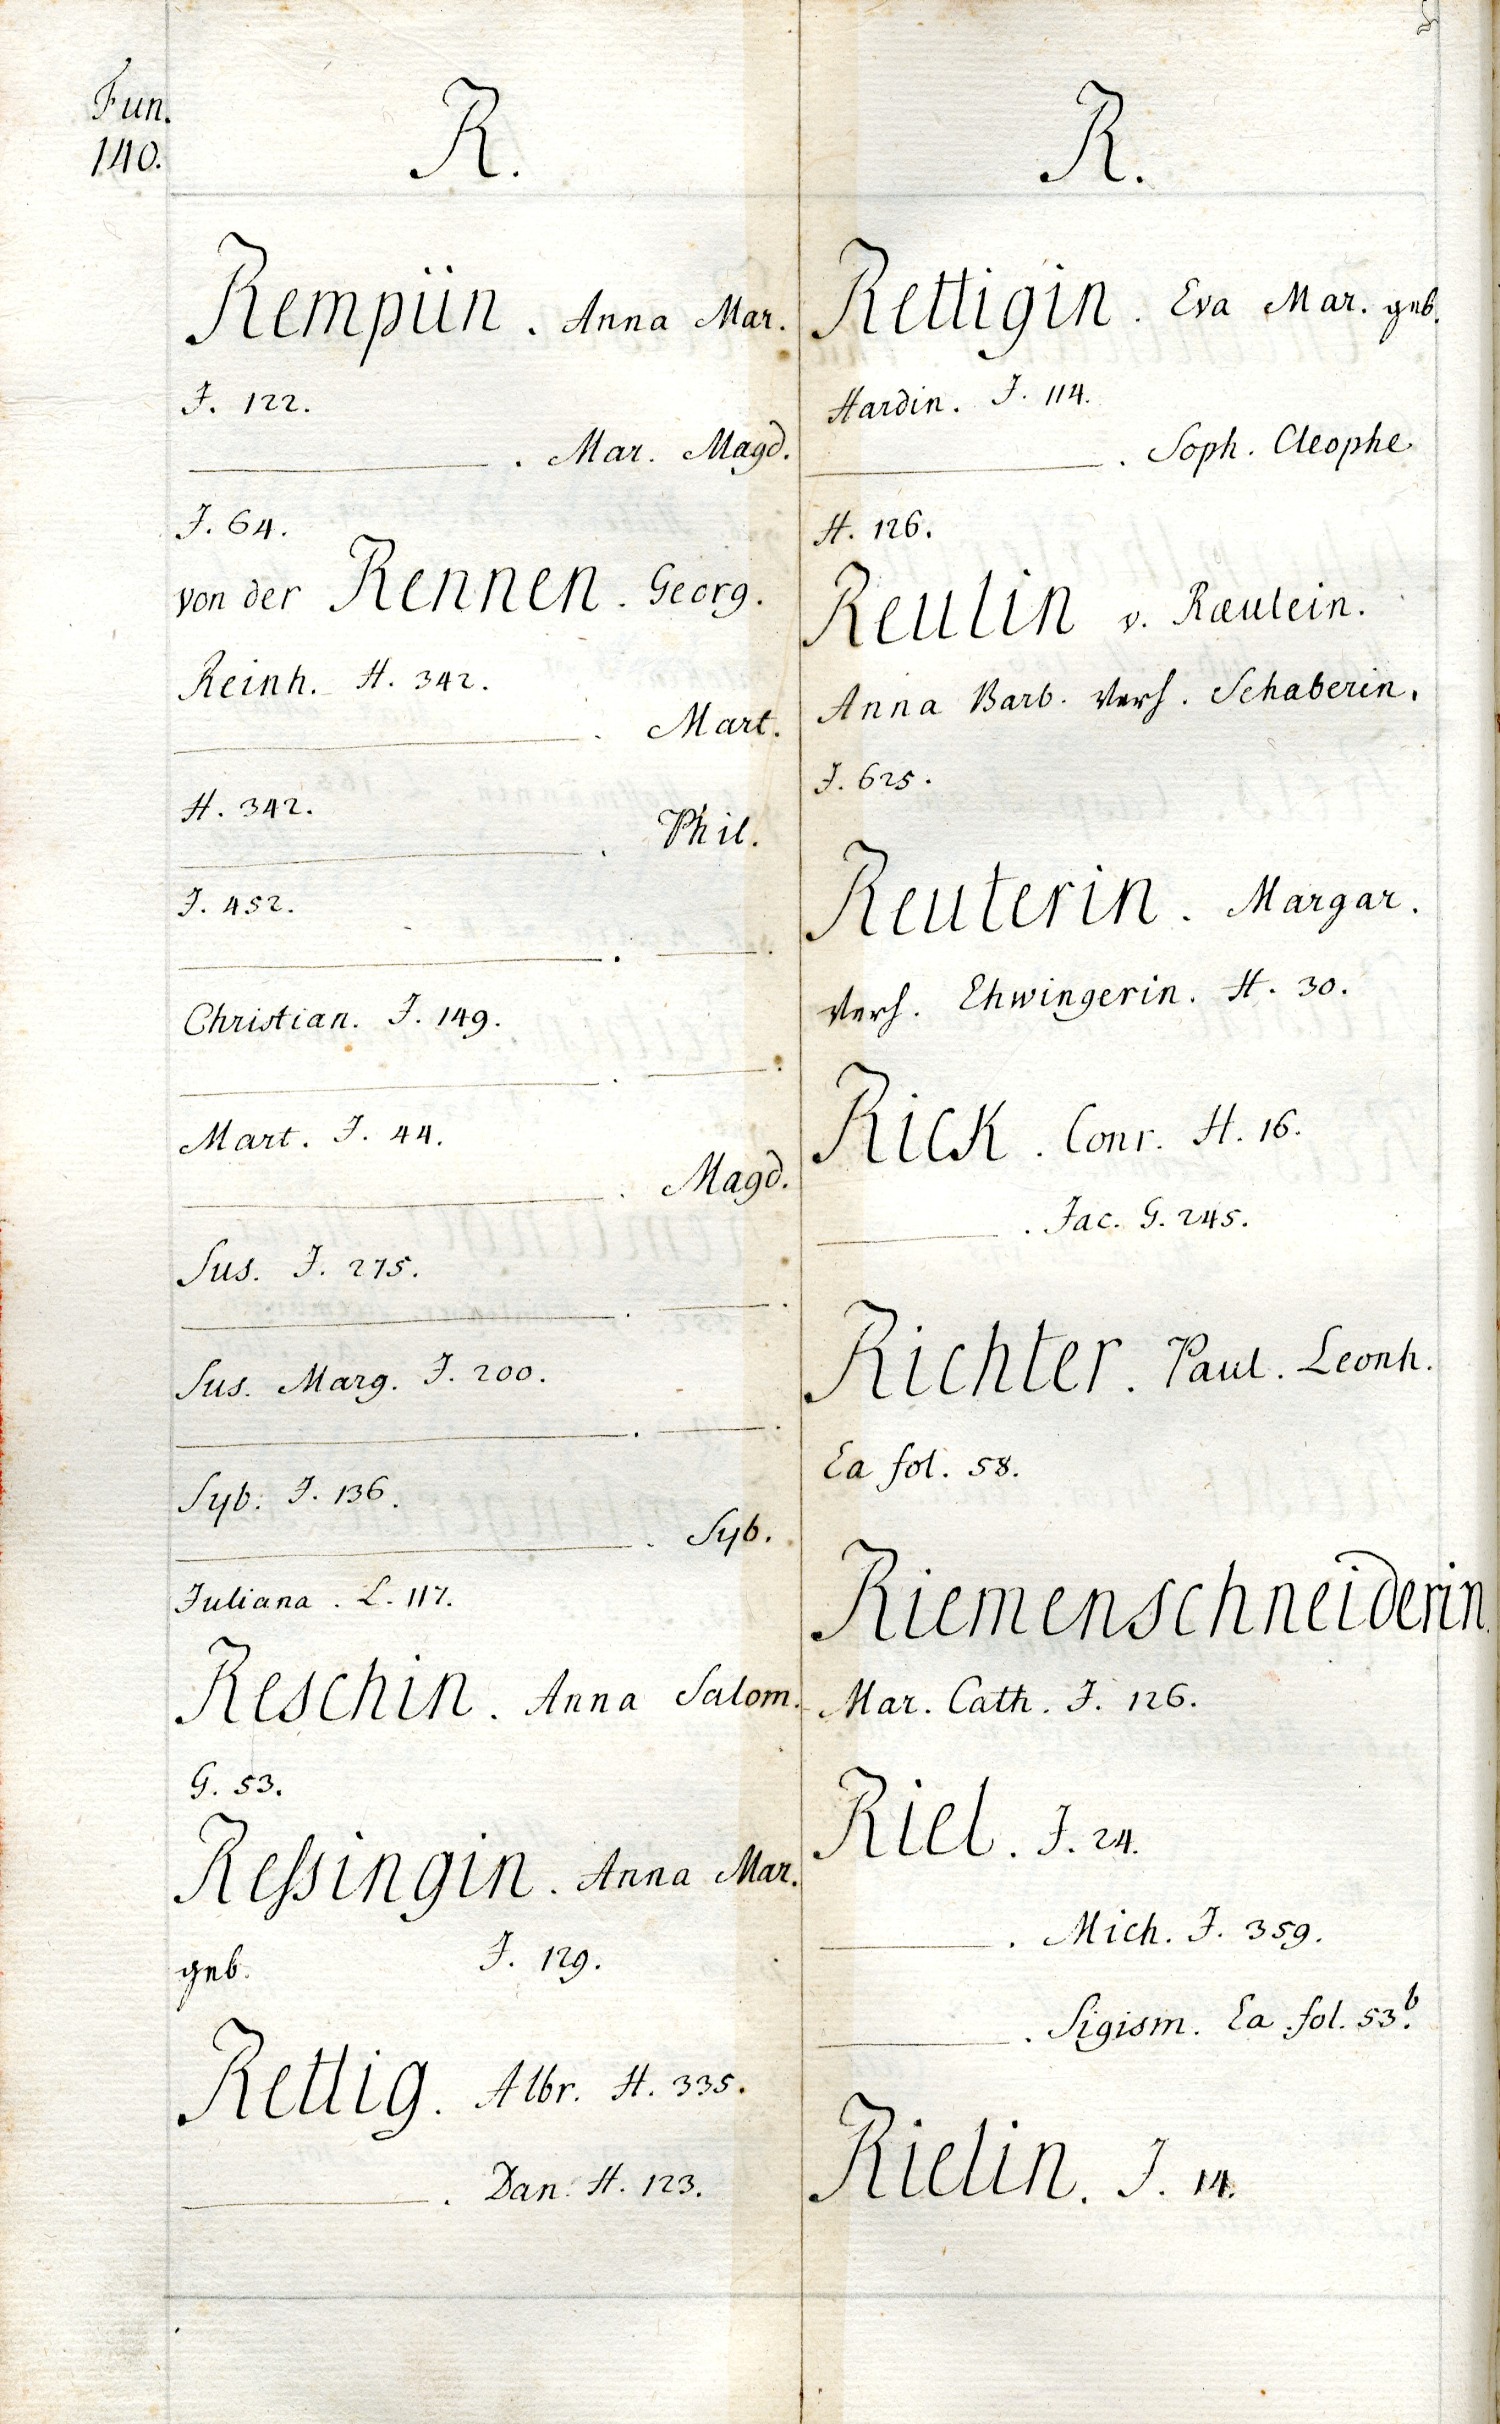 Fun.
140.
R.
Rempiin. Anna Mar.
J. 122.
. Mar. Magd.
J. 64.
von der Rennen. Georg.
Reinh. H. 342.
. Mart.
H. 342.
. Phil.
J. 452.
. .
Christian. J. 149.
. .
Mart. J. 44.
. Magd.
Sus. J. 275.
. .
Sus. Marg. J. 200.
. .
Syb. J. 136.
. Syb.
Juliana. L. 117.
Reschin. Anna Salom.
G. 53.
Reſsingin. Anna Mar.
geb. J. 129.
Rettig. Albr. H. 335.
. Dan. H. 123.
R.
Rettigin. Eva Mar. geb.
Hardin. J. 114.
. Soph. Cleophe
H. 126.
Reulin v. Ræulein.
Anna Barb. verh. Schaberin.
J. 625.
Reuterin. Margar.
verh. Ehwingerin. H. 30.
Rick. Conr. H. 16.
. Jac. G. 245.
Richter. Paul. Leonh.
Ea fol. 58.
Riemenschneiderin.
Mar. Cath. J. 126.
Riel. J. 24.
. Mich. J. 359.
. Sigism. Ea fol. 53b.
Rielin. J. 14.